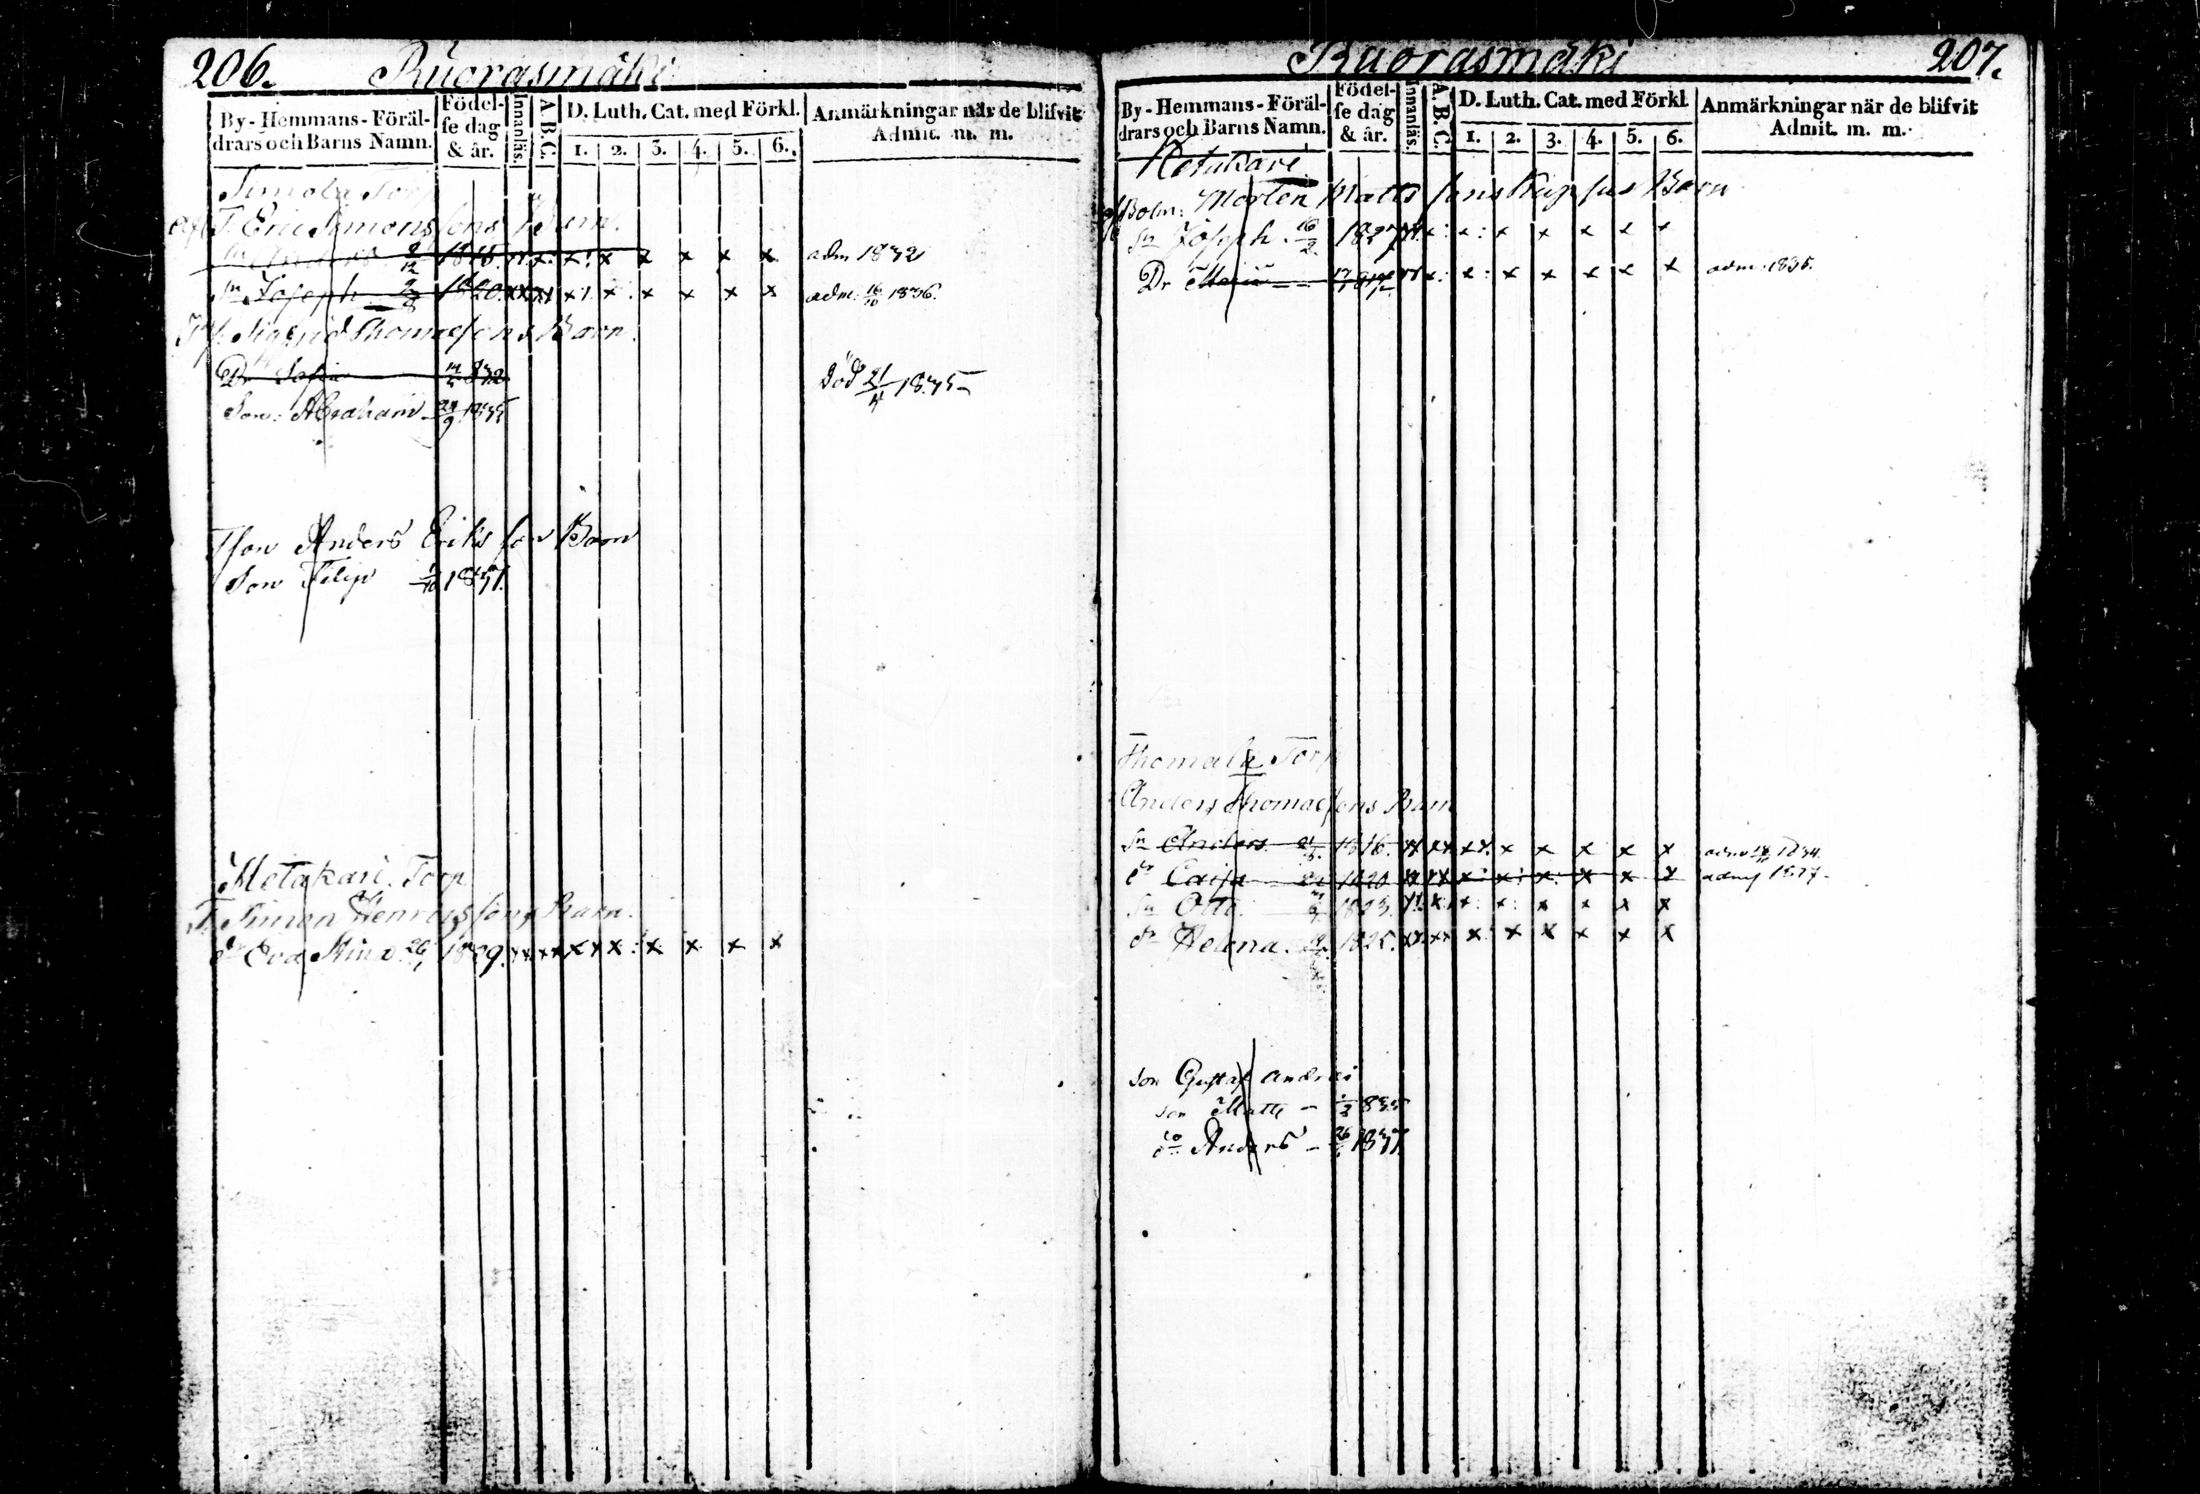 206. Ruorasmäki
By-Hemmans-Föräldrars och Barns Namn. Födelse dag & år. Innanläs. A.B.C. D. Luth. Cat. med Förkl. 1. 2. 3. 4. 5. 6. Anmärkningar när de blifvit Admit. m. m.
Simola Torp
T. Eric Simonssons Barn.
Anders 2/12 1815. x x x x x x adm 1832
Sn Joseph 2/8 1820. x x x x x x adm: 16/10 1836.
Sigfrid Thomassons Barn.
Dr Sofia 832 död 21/4 1835
Son: Abraham 1835
Anders Erikson Barn
Son Filip 1/10 1837.
Metakari Torp
T. Simon Henricssons Barn.
dr Eva Stina 26/1 1829. x x x x x x
Ruorasmäki 207.
By-Hemmans-Föräldrars och Barns Namn. Födelse dag & år. Innanläs. A.B.C. D. Luth. Cat. med Förkl. 1. 2. 3. 4. 5. 6. Anmärkningar när de blifvit Admit. m. m.
Metakari
Bolm: Morten Mattssons Barn
Sn Joseph. 16/2 1827 x x x x x x
Dr Maria x x x x x x adm: 1835.
Thomala Torp
Anders Thomassons Barn
Sn Anders 1816. x x x x x adm 1834.
dr Caisa 1820 x x x x x x 1837
Sn Otto. 1823. x x x x x x
dr Helena. 1825. x x x x x x
Son Gustaf
son Matts 835
do Anders 1837.